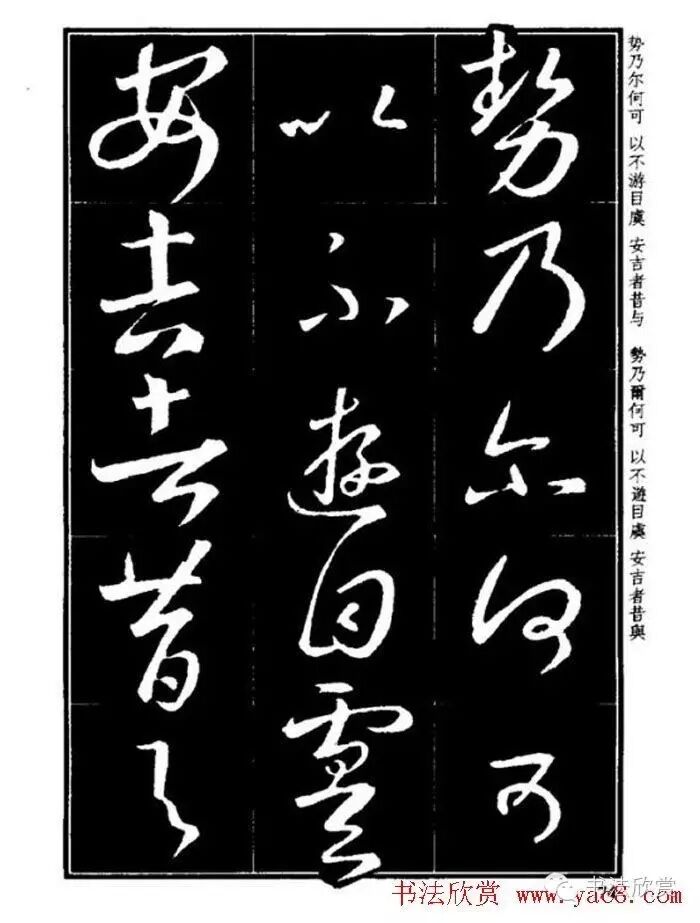 势乃尔何可 以不游目虞 安吉者昔与 勢乃爾何可 以不遊目虞 安吉者昔與
勢乃尔何可
以不遊目虞
安吉者昔与
书法欣赏
书法欣赏 www.yac6.com